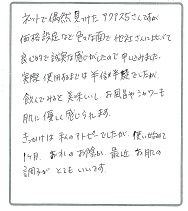 ネットで偶然見つけた アクアス5さんですが
価格設定など 色々な面で 他社さんに比べて
良心的で誠実な感じがしたので 申し込みました。
実際 使用するまでは 半信半疑でしたが、
飲んでみると 美味しいし、お風呂やシャワーも
肌に優しく感じられます。
きっかけは 私のアトピーでしたが、使い始めて
1ヶ月、おかげの お陰か、最近 お肌の
調子が とてもいいです。